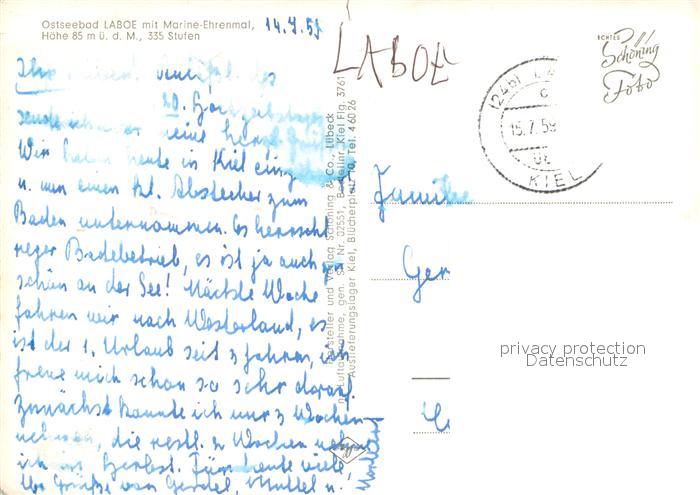 Ostseebad LABOE mit Marine-Ehrenmal,
Höhe 85 m ü. d. M., 335 Stufen
14.7.59
LABOE
ECHTES
Schöning
Foto
(24b)
15.7.59
KIEL
Familie
Ihr Lieben! des
20. Hochzeitstages
sende ich
Wir haben heute in Kiel
u. nun einen kl. Abstecher zum
Baden unternommen. Es herrscht
reger Badebetrieb, es ist ja auch zu
schön an der See! Nächste Woche
fahren wir nach Westerland, es
ist der 1. Urlaub seit 3 Jahren, ich
freue mich schon so sehr darauf.
Zunächst konnte ich nur 3 Wochen
nehmen, die restl. 2 Wochen nehme
ich im Herbst. Für heute viele
lbe Grüße von Gerdel, Muttel u.
Hersteller und Verlag Schöning & Co., Lübeck
Luftaufnahme, gen. SH Nr. 02551, Bestellnr. Kiel Flg. 3761
Auslieferungslager Kiel, Blücherplatz 10, Tel. 46026
privacy protection
Datenschutz